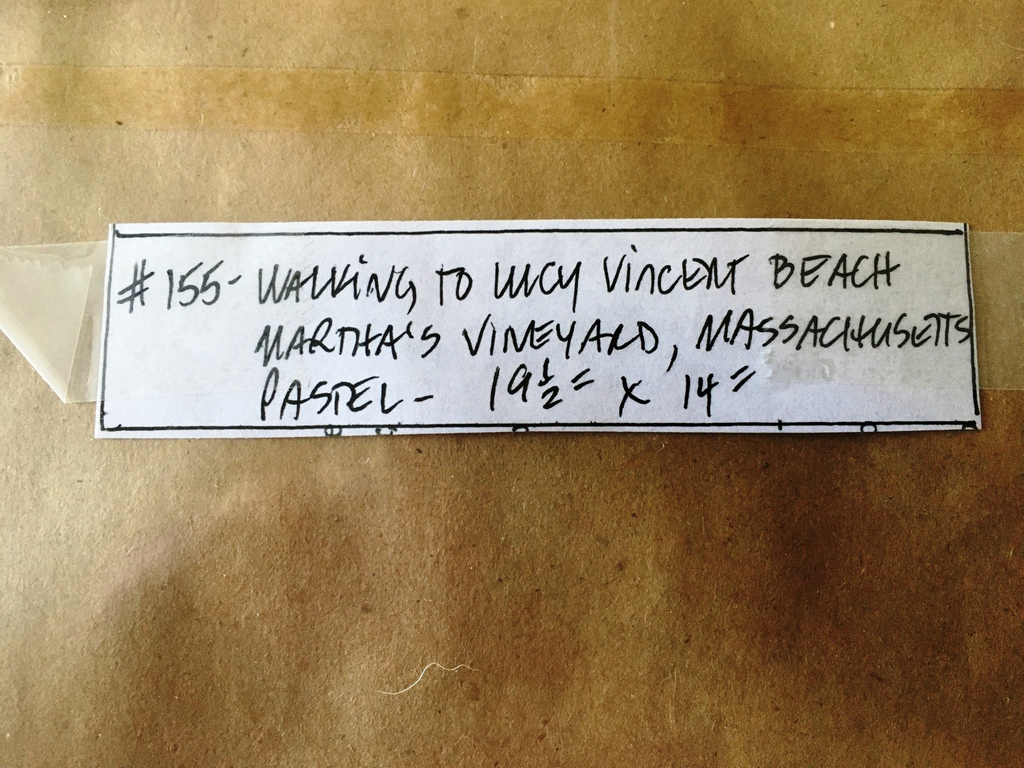 #155- WALKING TO LUCY VINCENT BEACH
MARTHA'S VINEYARD, MASSACHUSETTS
PASTEL- 19 1/2" x 14"